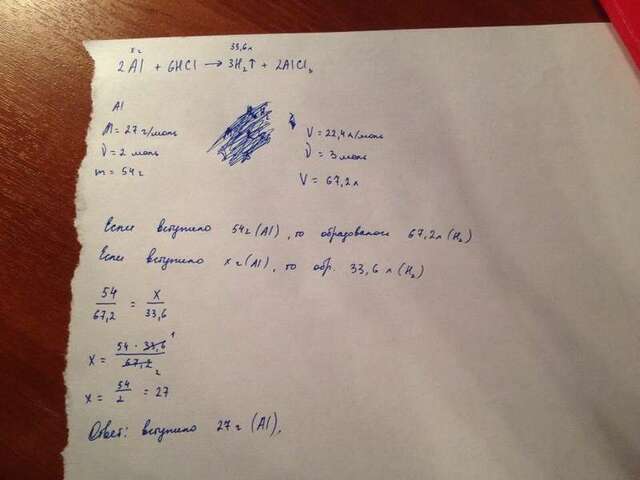 x г 33,6 л
2Al + 6HCl → 3H₂↑ + 2AlCl₃
Al
M = 27 г/моль V = 22,4 л/моль
ν = 2 моль ν = 3 моль
m = 54 г V = 67,2 л
Если вступило 54г (Al), то образовалось 67,2 л (H₂)
Если вступило x г (Al), то обр. 33,6 л (H₂)
54/67,2 = x/33,6
x = 54 · 33,6 1/67,2 2
x = 54/2 = 27
Ответ: вступило 27 г (Al).